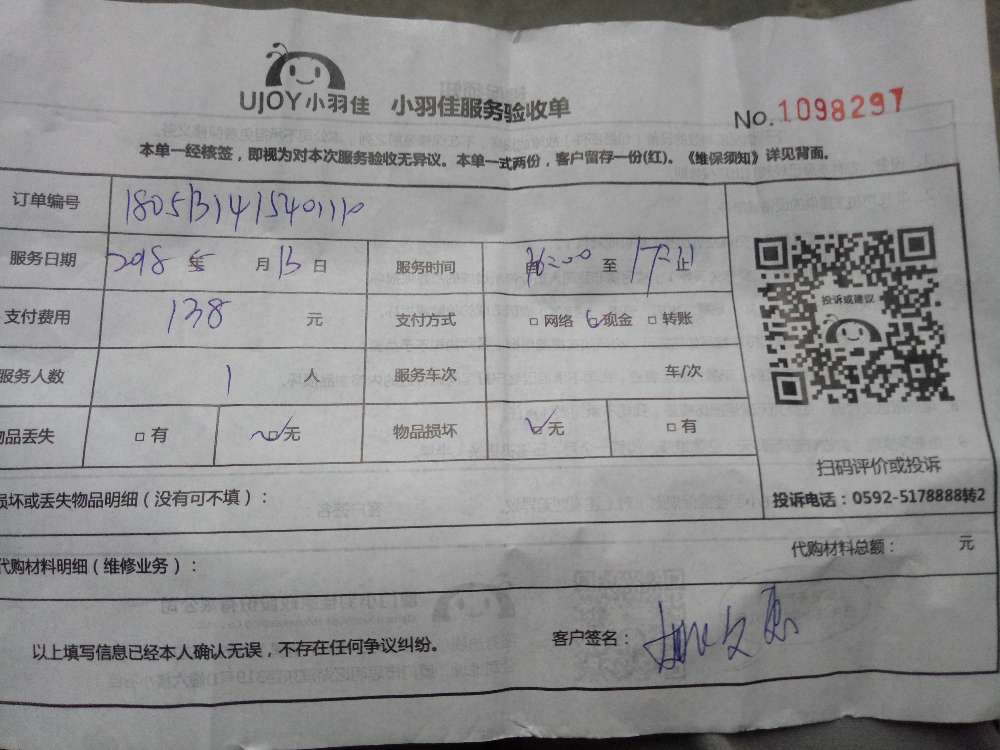 UJOY小羽佳 小羽佳服务验收单
No.1098297
本单一经核签，即视为对本次服务验收无异议。本单一式两份，客户留存一份(红)。《维保须知》详见背面。
订单编号
服务日期 2018年5月13日 服务时间 自16:00至17:11止
支付费用 138 元 支付方式 □网络 □现金 □转账
服务人数 1 人 服务车次 车/次
物品丢失 □有 □无 物品损坏 □无 □有
投诉或建议
扫码评价或投诉
投诉电话：0592-5178888转2
损坏或丢失物品明细（没有可不填）：
代购材料总额： 元
代购材料明细（维修业务）：
以上填写信息已经本人确认无误，不存在任何争议纠纷。
客户签名：